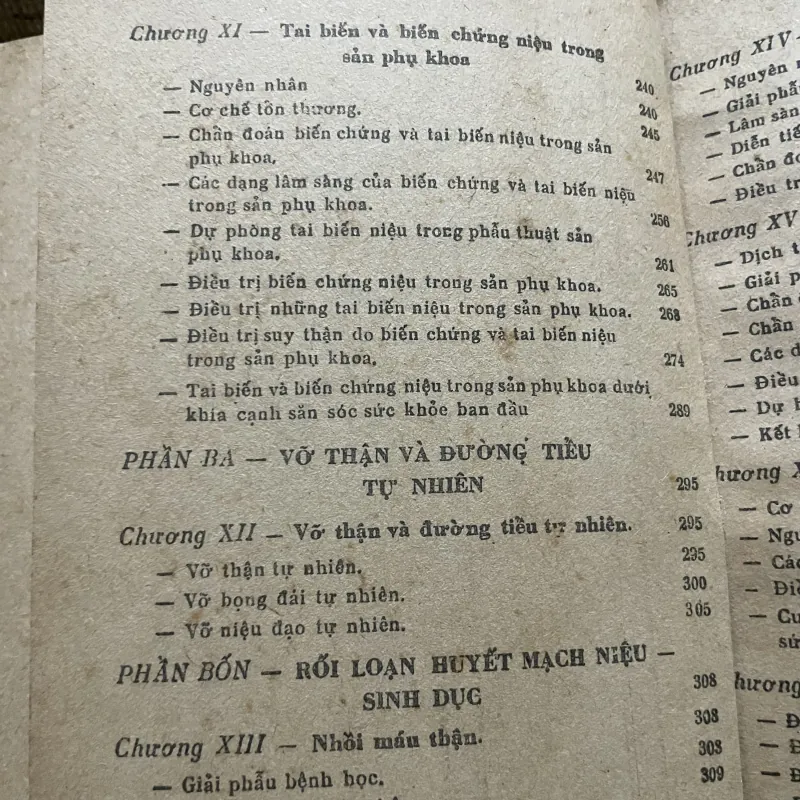 Chương XI — Tai biến và biến chứng niệu trong
sản phụ khoa
— Nguyên nhân 240
— Cơ chế tổn thương. 240
— Chẩn đoán biến chứng và tai biến niệu trong sản 245
phụ khoa.
— Các dạng lâm sàng của biến chứng và tai biến niệu 247
trong sản phụ khoa.
— Dự phòng tai biến niệu trong phẫu thuật sản 256
phụ khoa.
— Điều trị biến chứng niệu trong sản phụ khoa. 261
— Điều trị những tai biến niệu trong sản phụ khoa. 265
— Điều trị suy thận do biến chứng và tai biến niệu 268
trong sản phụ khoa. 274
— Tai biến và biến chứng niệu trong sản phụ khoa dưới
khía cạnh săn sóc sức khỏe ban đầu 289
PHẦN BA — VỠ THẬN VÀ ĐƯỜNG TIỂU
TỰ NHIÊN 295
Chương XII — Vỡ thận và đường tiểu tự nhiên. 295
— Vỡ thận tự nhiên. 295
— Vỡ bọng đái tự nhiên. 300
— Vỡ niệu đạo tự nhiên. 305
PHẦN BỐN — RỐI LOẠN HUYẾT MẠCH NIỆU —
SINH DỤC 308
Chương XIII — Nhồi máu thận. 308
308
— Giải phẫu bệnh học. 309
Chương XIV —
— Nguyên
— Giải phẫu
— Lâm sàn
— Diễn tiế
— Chẩn đo
— Điều tr
Chương XV
— Dịch t
— Giải p
— Chẩn
— Chẩn
— Các d
— Điều
— Dự
— Kết
hương X
— Cơ
— Ngu
— Các
— Điề
— Cu
sứ
hương
— Đ
— Đ
— Đ